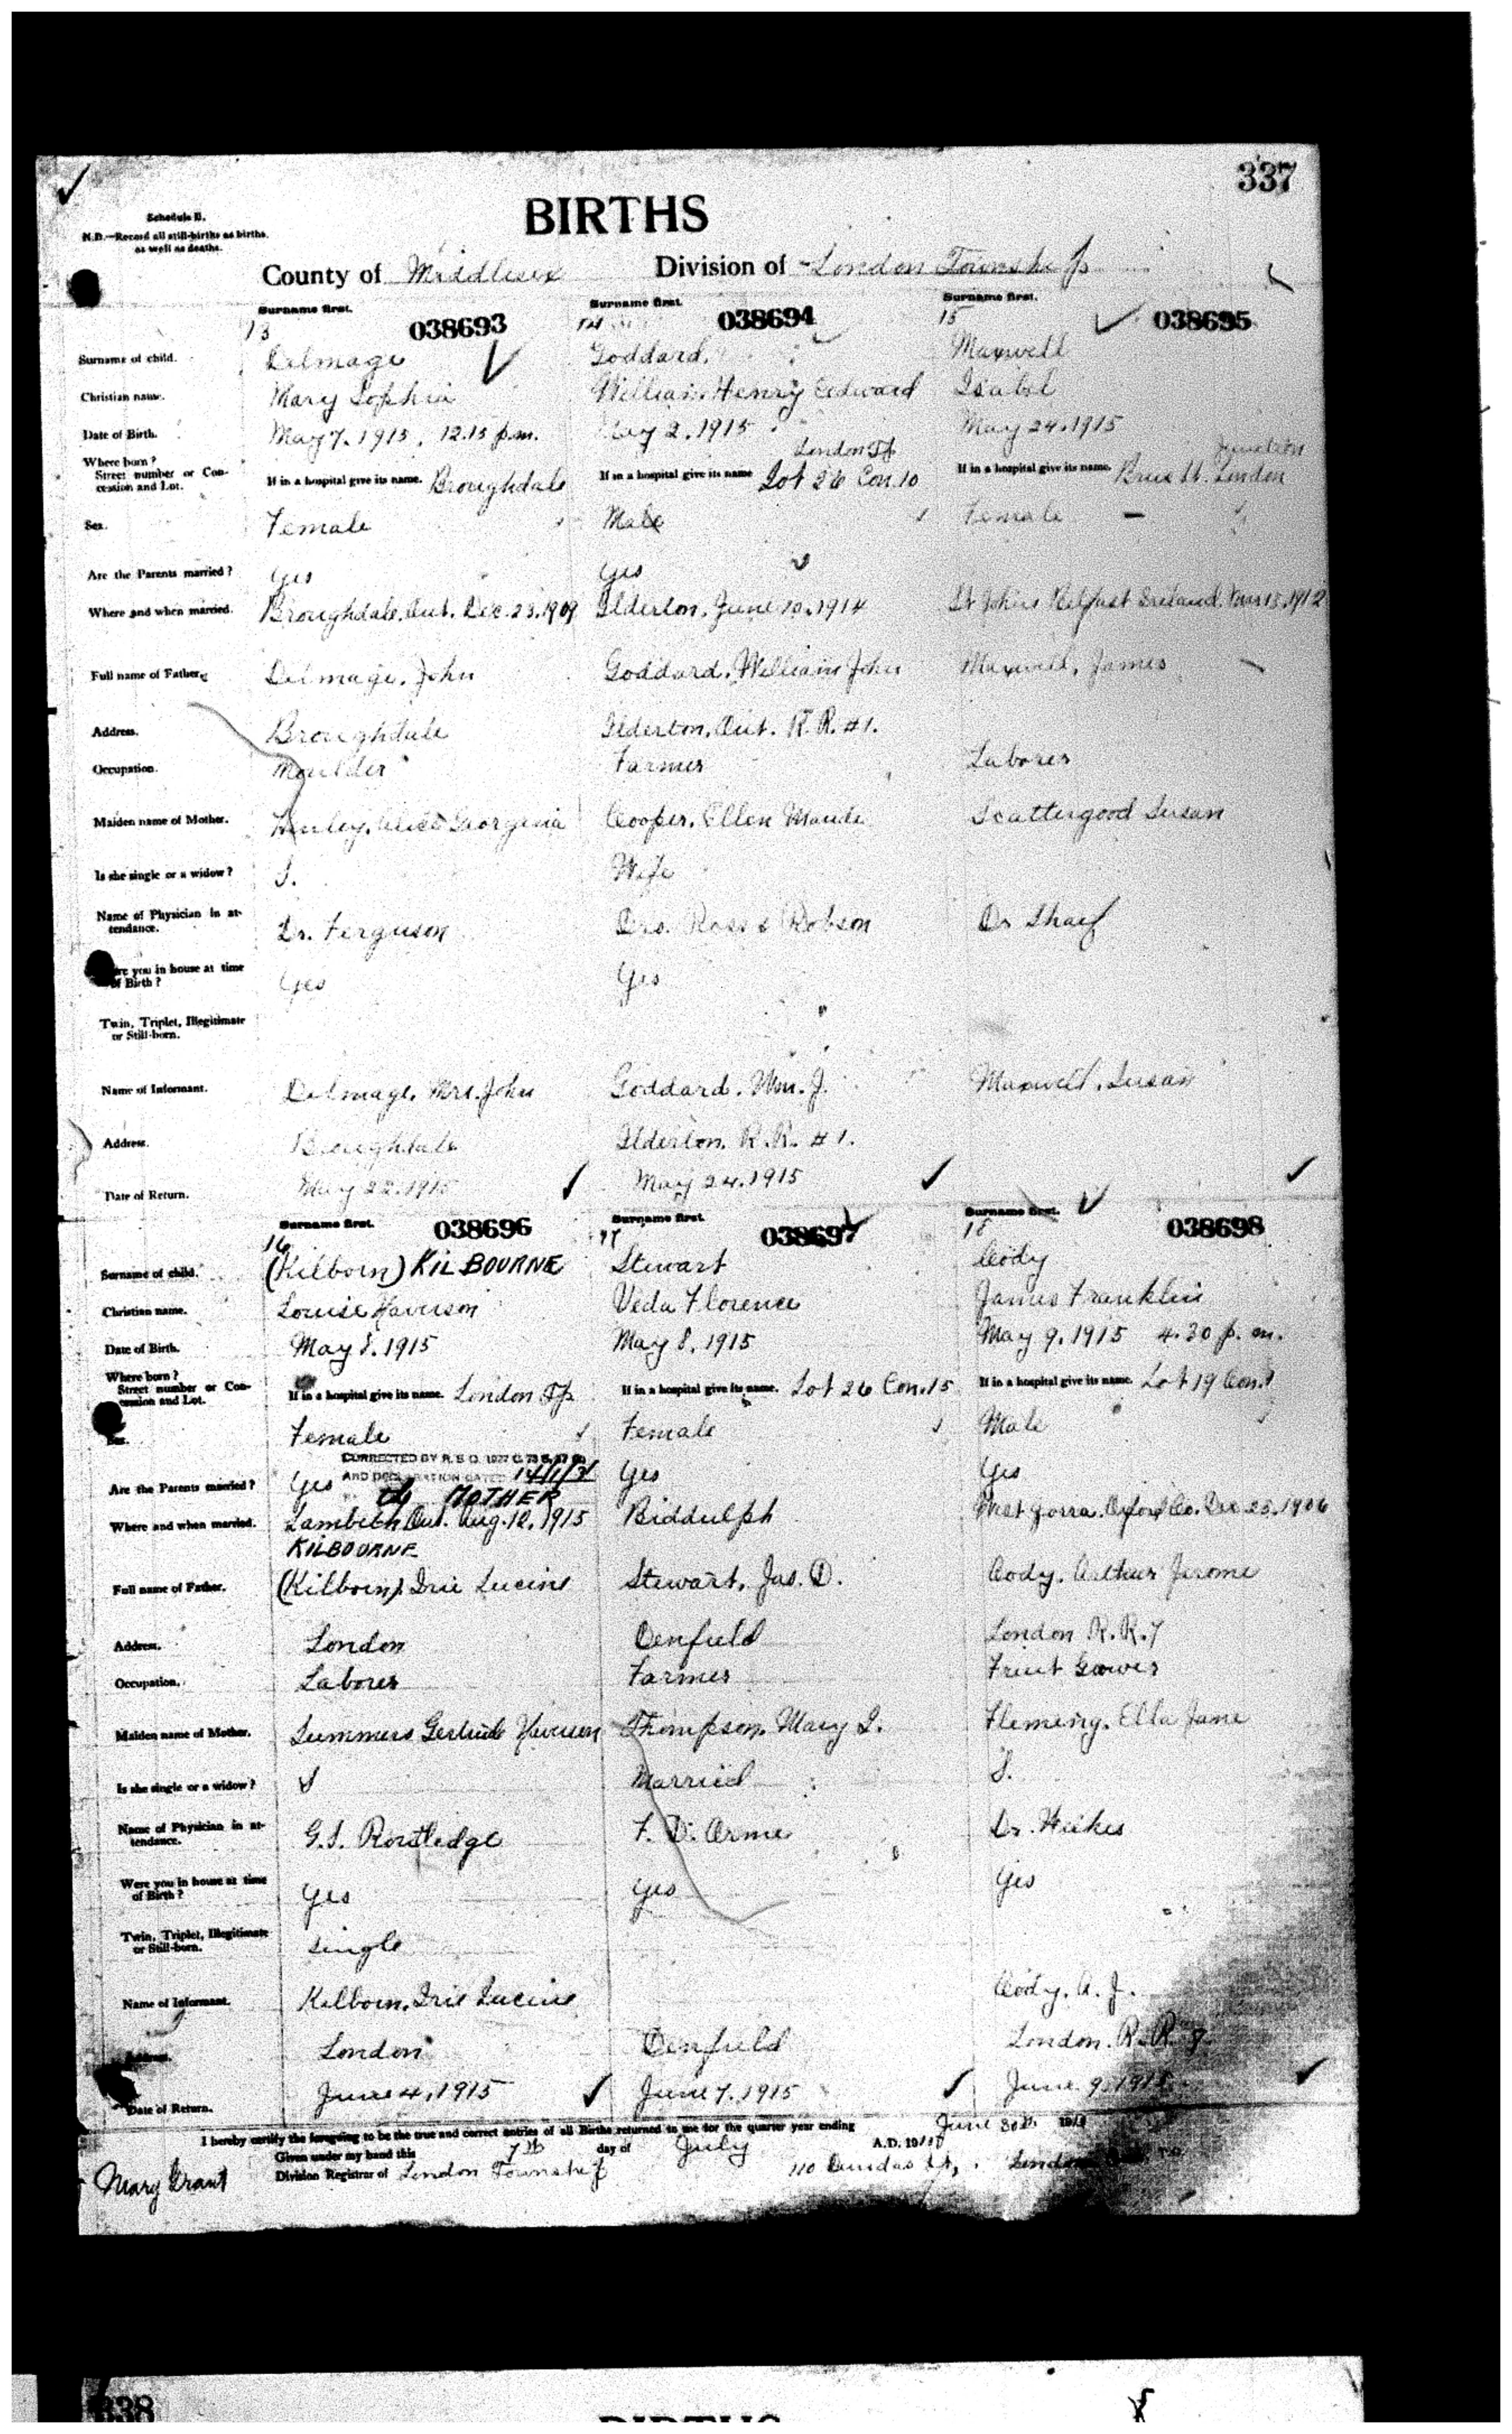 337
Schedule B.
N.B.—Record all still-births as births, as well as deaths.
BIRTHS
County of Middlesex Division of London Township
Surname first. Surname first. Surname first.
13 038693 14 038694 15 038695
Surname of child. Delmage Goddard. Maxwell
Christian name. Mary Sophia William Henry Edward Isabel
Date of Birth. May 7. 1915, 12.15 p.m. May 2. 1915 May 24. 1915
Where born? London Tp Junction
Street number or Concession and Lot. If in a hospital give its name. Broughdale If in a hospital give its name Lot 26 Con. 10 If in a hospital give its name. St. London
Sex. Female Male Female —
Are the Parents married? Yes Yes
Where and when married. Broughdale, Ont. Dec. 23. 1909 Ilderton, June 10. 1914 St Johns Belfast Ireland, 13, 1912
Full name of Father. Delmage, John Goddard, William John Maxwell, James
Address. Broughdale Ilderton, Ont. R.R. #1.
Occupation. Moulder Farmer Laborer
Maiden name of Mother. Georgina Cooper, Ellen Maude Scattergood Susan
Is she single or a widow? S. Wife
Name of Physician in attendance. Dr. Ferguson Drs. Ross & Robson Dr
Were you in house at time of Birth? Yes Yes
Twin, Triplet, Illegitimate or Still-born.
Name of Informant. Delmage, Mrs. John Goddard, Wm. J. Maxwell, Susan
Address. Broughdale Ilderton. R.R. #1.
Date of Return. May 22. 1915 May 24. 1915
Surname first. Surname first. Surname first.
16 038696 17 038697 18 038698
Surname of child. (Kilborn) KILBOURNE Stewart Cody
Christian name. Louise Harrison Veda Florence James Franklin
Date of Birth. May 8. 1915 May 8, 1915 May 9. 1915 4.30 p.m.
Where born?
Street number or Concession and Lot. If in a hospital give its name. London Tp. If in a hospital give its name. Lot 26 Con. 15 If in a hospital give its name. Lot 19 Con.
Sex. Female Female Male
CORRECTED BY R.S.O. 1927 C. 78 S.
AND DECLARATION DATED
Are the Parents married? Yes Yes Yes
MOTHER
Where and when married. Lambeth Ont. Aug. 12, 1915 Biddulph West Zorra. Oxford Co. Dec. 25. 1906
KILBOURNE
Full name of Father. (Kilborn) Lucine Stewart, Jas. D. Cody. Arthur Jerome
Address. London Denfield London R.R. 7
Occupation. Laborer Farmer Fruit Grower
Maiden name of Mother. Summers Gertrude Thompson, Mary Fleming, Ella Jane
Is she single or a widow? S Married S.
Name of Physician in attendance. G.S. Routledge F. D. Orme Dr.
Were you in house at time of Birth? Yes Yes Yes
Twin, Triplet, Illegitimate or Still-born. Single
Name of Informant. Kilborn, Lucine Cody, A. J.
Address. London Denfield London. R.R.
Date of Return. June 4, 1915 June 7. 1915 June 9, 1915
I hereby certify the foregoing to be the true and correct entries of all Births returned to me for the quarter year ending June 30th 191
Given under my hand this 7th day of July A.D. 191
Mary Grant Division Registrar of London Township 110 Dundas St, London
338
BIRTHS